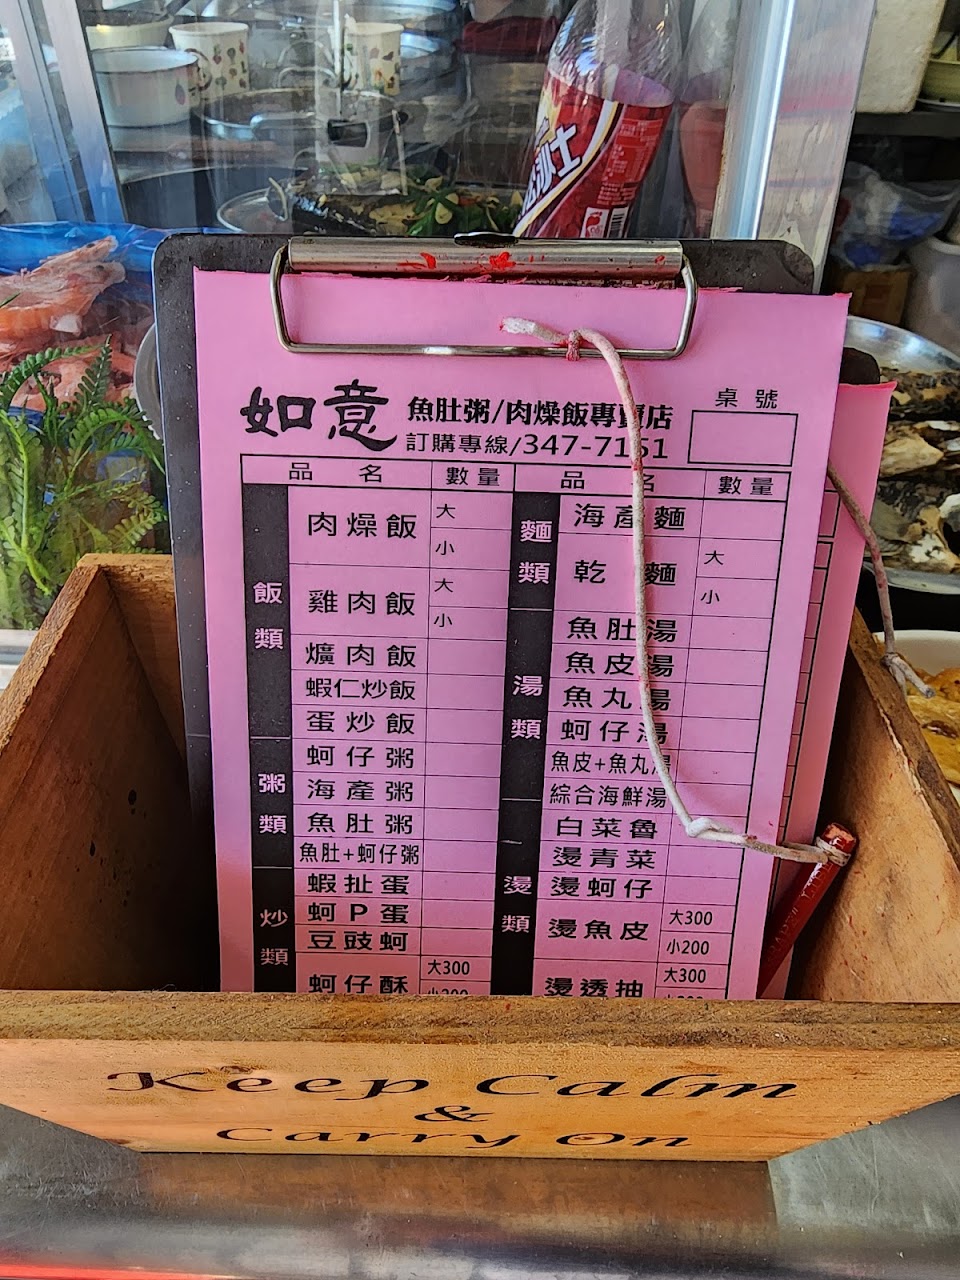 沙士
如意
魚肚粥/肉燥飯專賣店
訂購專線/347-7151
桌號
品名 數量 品名 數量
飯類
肉燥飯 大
小
雞肉飯 大
小
爌肉飯
蝦仁炒飯
蛋炒飯
粥類
蚵仔粥
海產粥
魚肚粥
魚肚+蚵仔粥
炒類
蝦扯蛋
蚵P蛋
豆豉蚵
蚵仔酥 大300
小200
麵類
海產麵
乾麵 大
小
湯類
魚肚湯
魚皮湯
魚丸湯
蚵仔湯
魚皮+魚丸湯
綜合海鮮湯
燙類
白菜魯
燙青菜
燙蚵仔
燙魚皮 大300
小200
燙透抽 大300
Keep Calm
&
Carry On